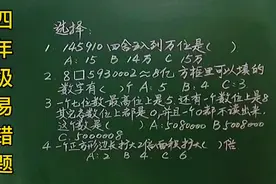 四年级易错题
选择:
1 145910四舍五入到万位是( )
A: 15 B 14万 C 15万
2. 8口5930002≈8亿 方框里可以填的
数字有( )个 A 5 B: 4 C: 3
3 一个七位数最高位上是5,还有一个数位上是8
其它各数位上都是0,并且一个0都不读出来,
这个数是( ) A: 5080000 B 5008000
C. 5000008
4 一个正方形边长扩大2倍面积扩大( )倍
A: 2 B 4 C 6